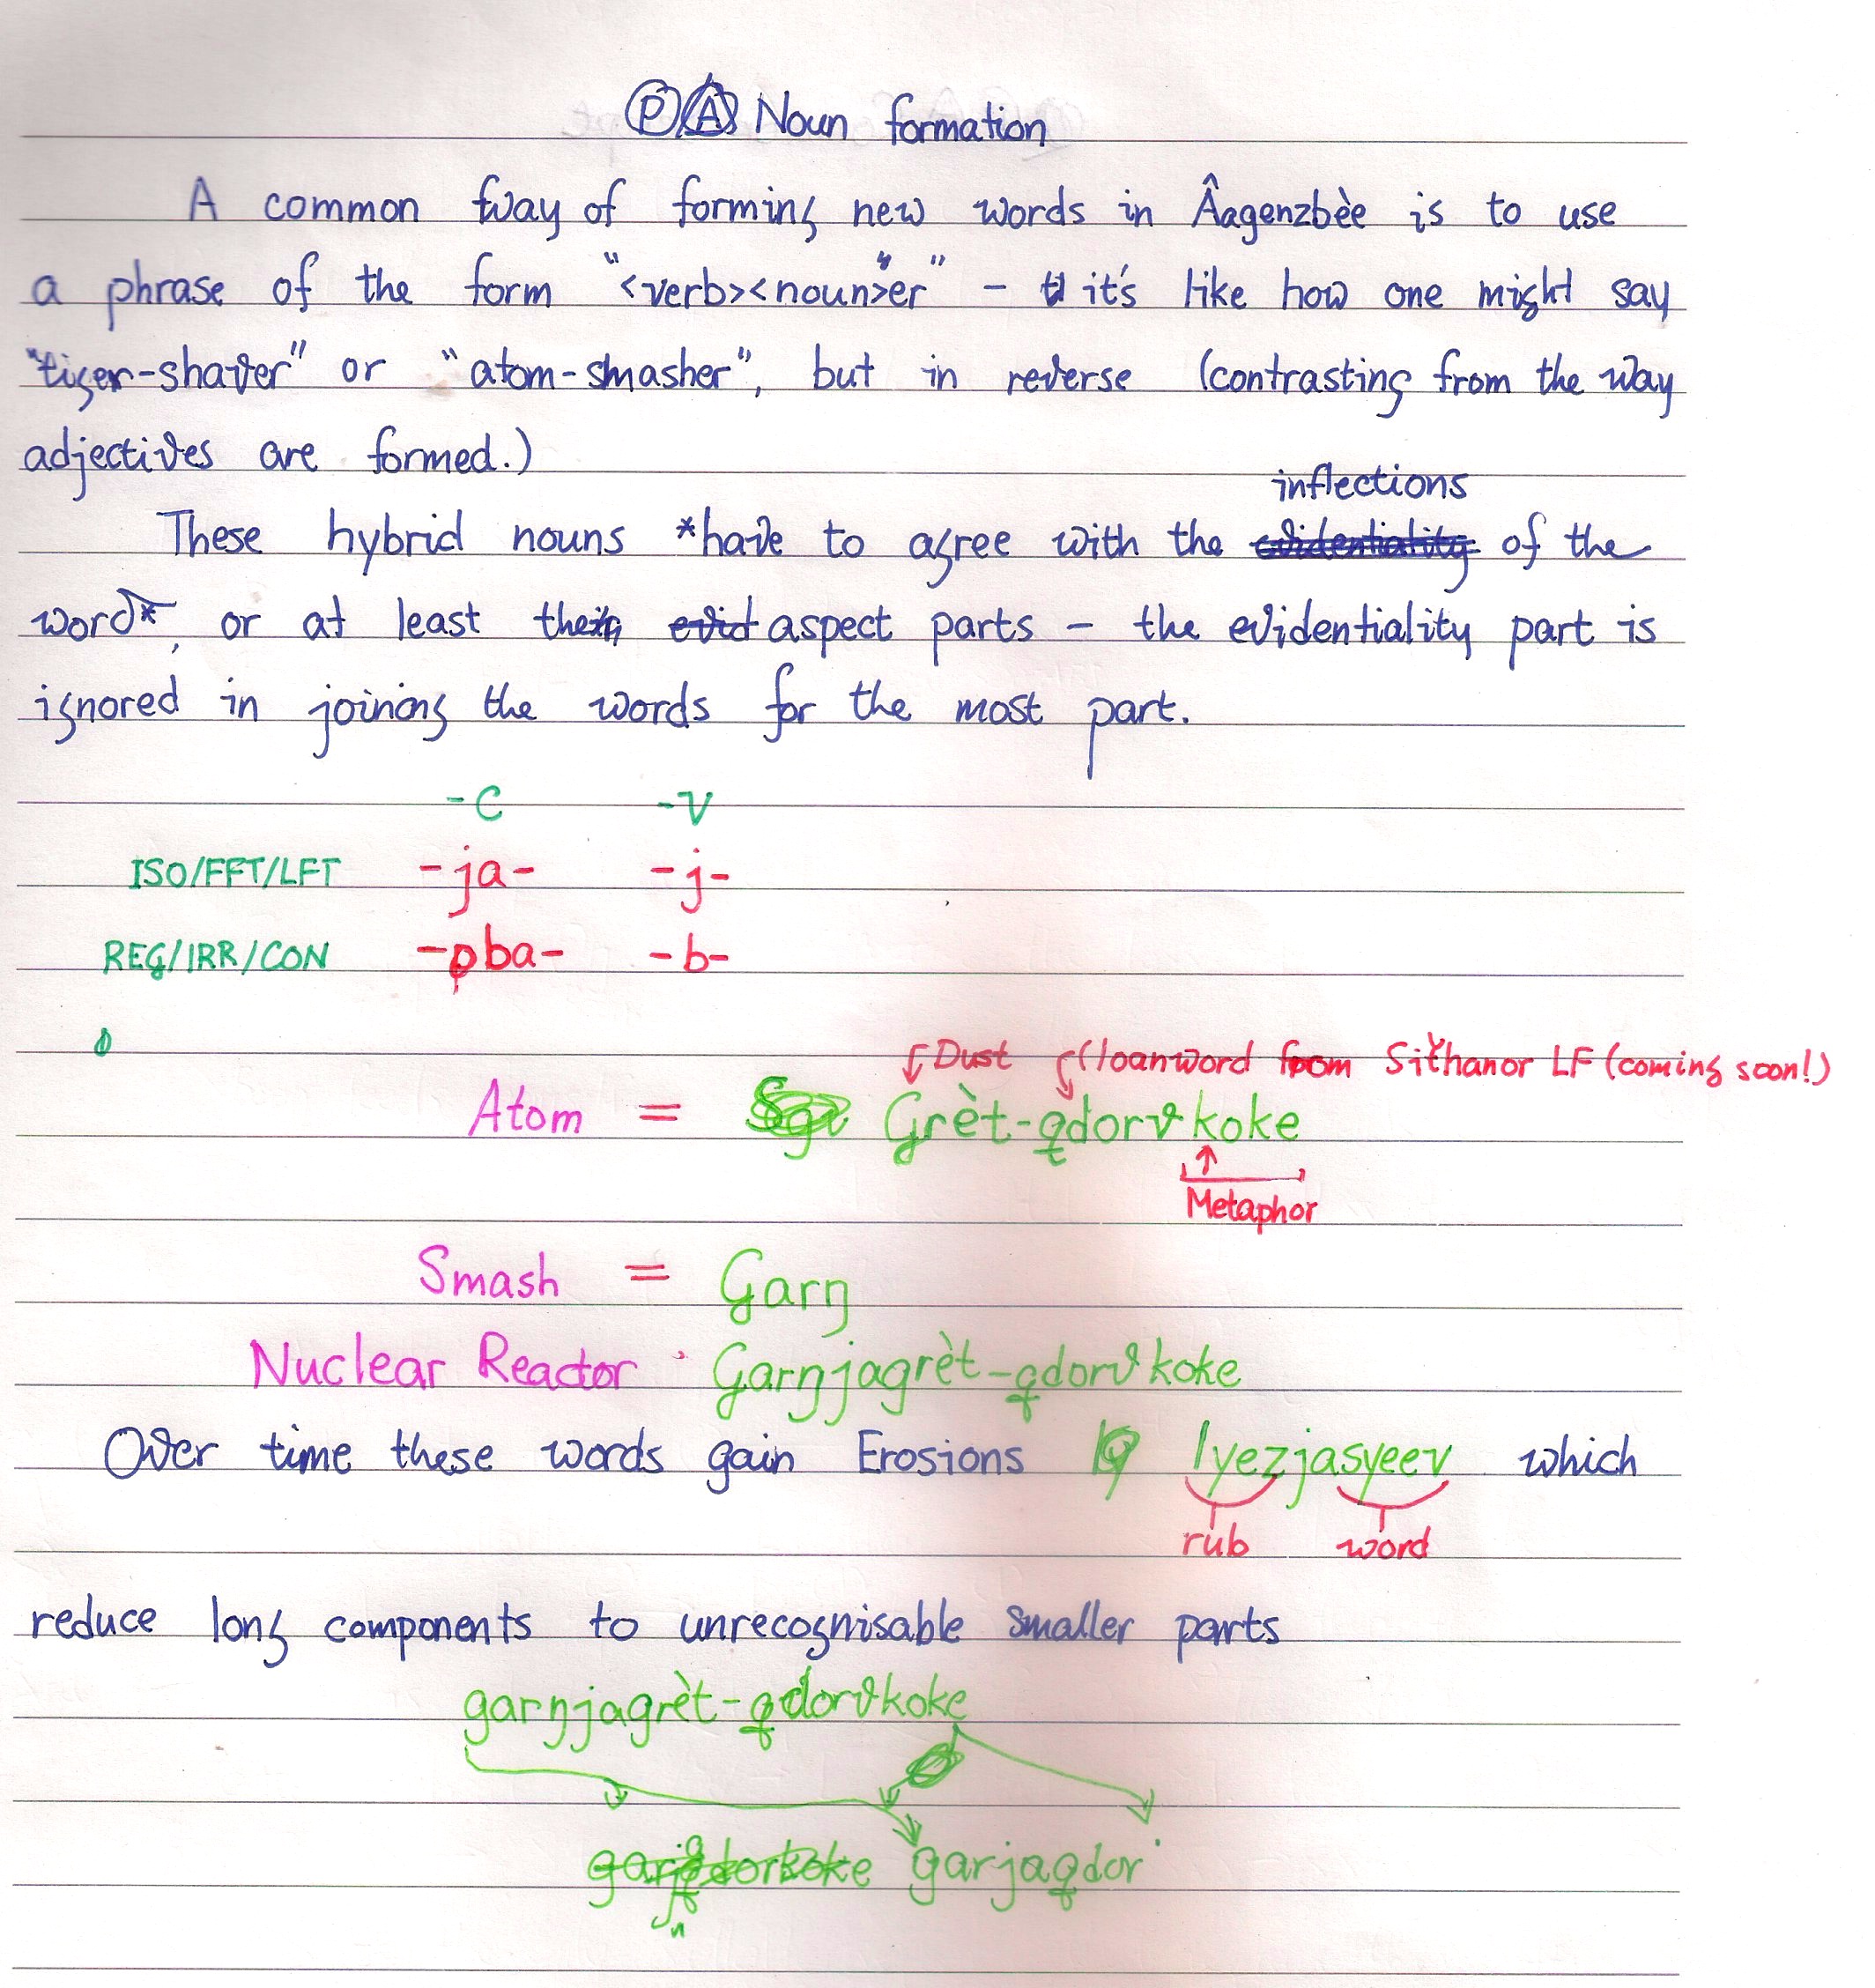 Ⓟ Ⓐ Noun formation
A common way of forming new words in Âagenzbèe is to use
a phrase of the form "<verb><noun>er" - it's like how one might say
"tiger-shaver" or "atom-smasher", but in reverse (contrasting from the way
adjectives are formed.)
inflections
These hybrid nouns *have to agree with the evidentiality of the
word*, or at least their evid aspect parts - the evidentiality part is
ignored in joining the words for the most part.
-C -V
ISO/FFT/LFT -ja- -j-
REG/IRR/CON -pba- -b-
Dust (loanword from Sitȟanor LF (coming soon!)
Atom = Grèt-qdorvkoke
Metaphor
Smash = Garŋ
Nuclear Reactor Garŋjagrèt-qdorvkoke
Over time these words gain Erosions lyezjasyeev which
rub word
reduce long components to unrecognisable smaller parts
garŋjagrèt-qdorvkoke
garjaqdor